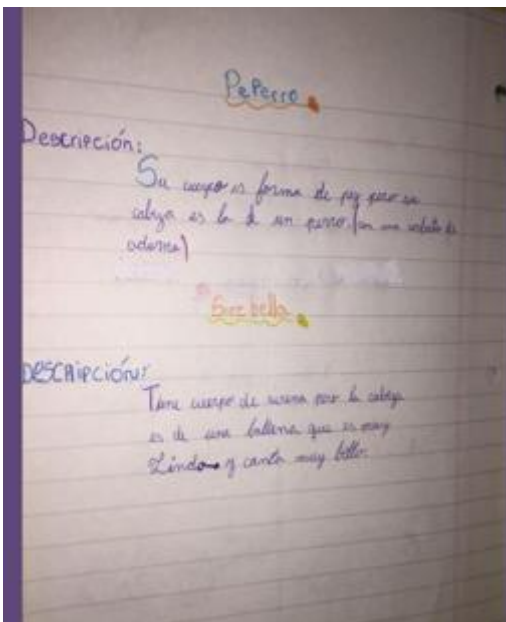 PePerro
Descripción:
Su cuerpo es forma de pez pero su
cabeza es la de un perro. (en una de
adorno)
bella
DESCRIPCIÓN:
Tiene cuerpo de sirena pero la cabeza
es de una ballena que es muy
Linda y canta muy bello.